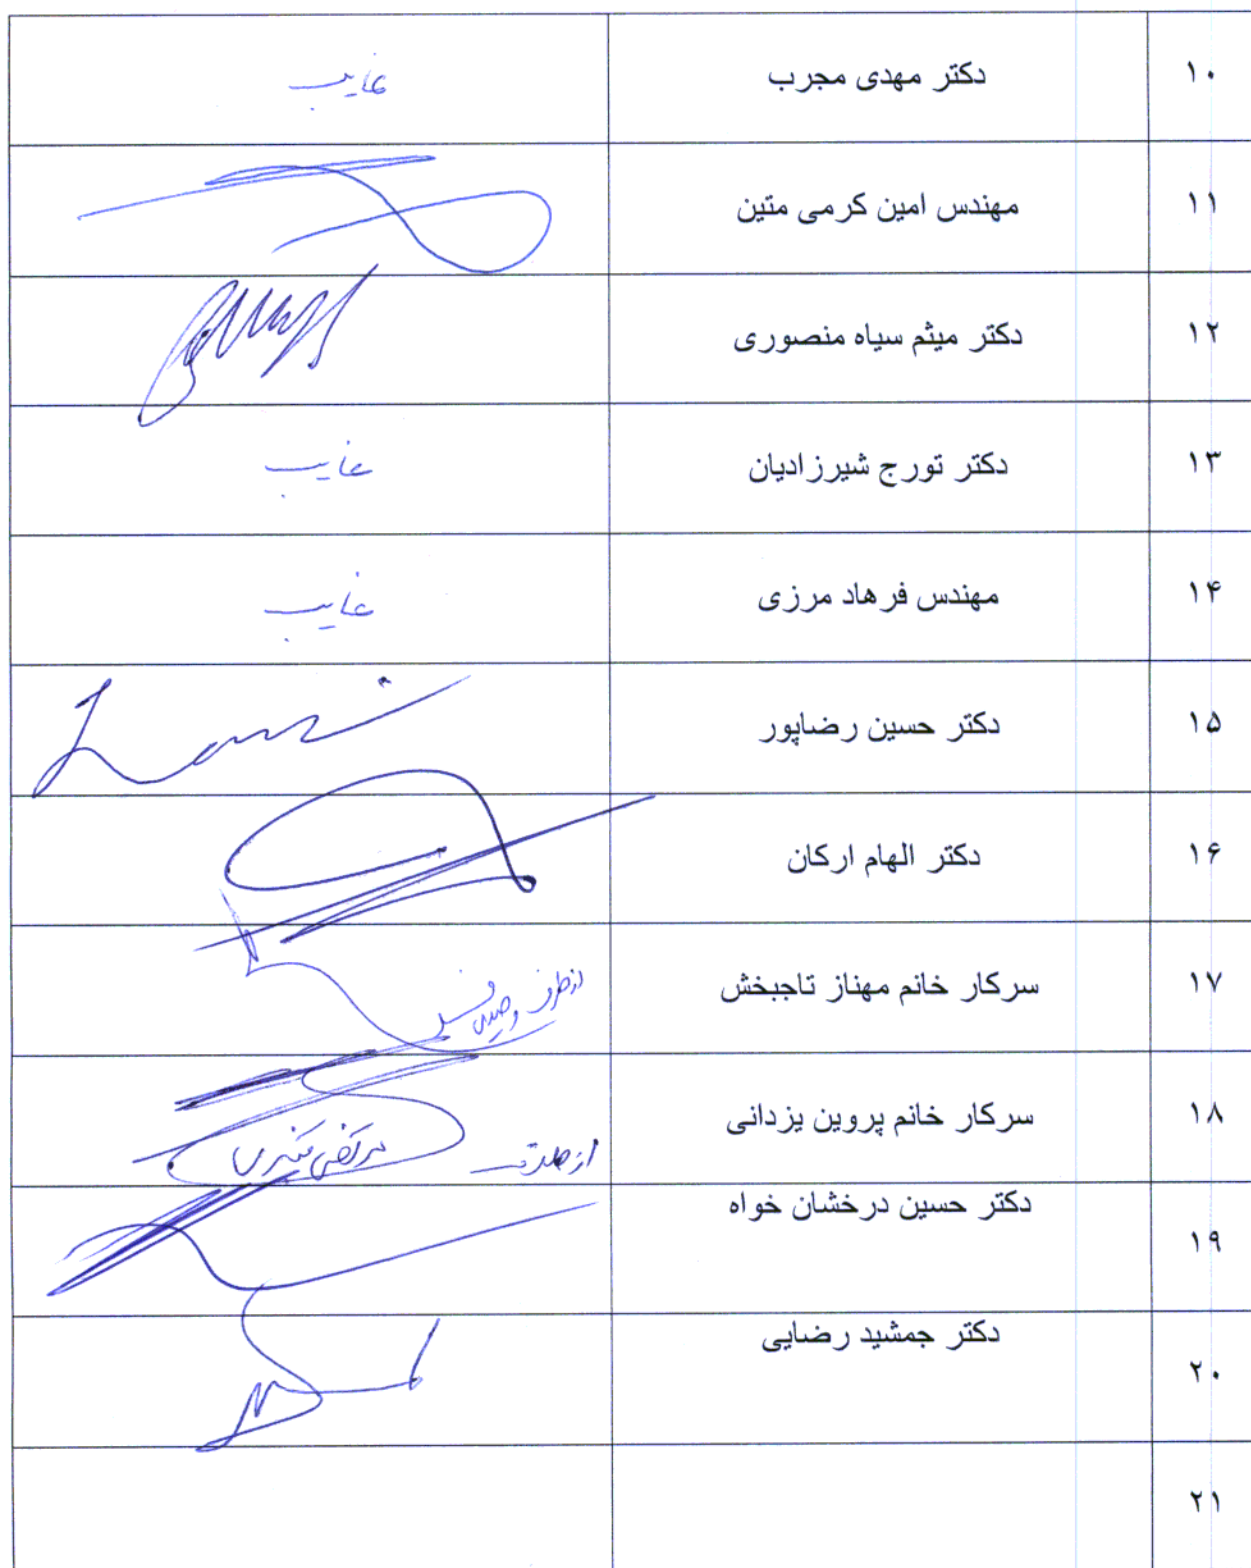 ۱۰ دکتر مهدی مجرب غایب
۱۱ مهندس امین کرمی متین
۱۲ دکتر میثم سیاه منصوری
۱۳ دکتر تورج شیرزادیان غایب
۱۴ مهندس فرهاد مرزی غایب
۱۵ دکتر حسین رضاپور
۱۶ دکتر الهام ارکان
۱۷ سرکار خانم مهناز تاجبخش از طرف
۱۸ سرکار خانم پروین یزدانی از طرف مرتضی
۱۹ دکتر حسین درخشان خواه
۲۰ دکتر جمشید رضایی
۲۱